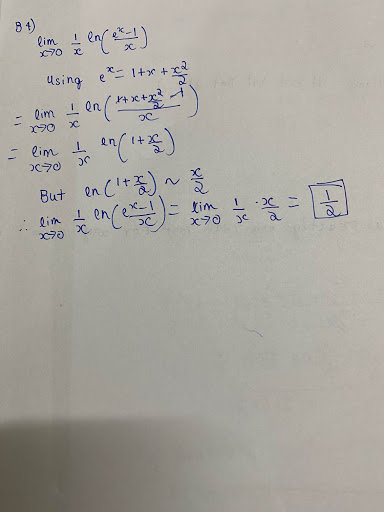 84)
lim x→0 1/x ln((e^x-1)/x)
Using e^x = 1+x+x²/2
= lim x→0 1/x ln((1+x+x²/2-1)/x)
= lim x→0 1/x ln(1+x/2)
But ln(1+x/2) ~ x/2
∴ lim x→0 1/x ln((e^x-1)/x) = lim x→0 1/x · x/2 = 1/2